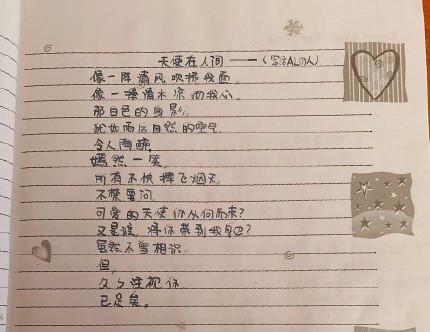 天使在人间 ——（写给AL的人）
像一阵清风吹拂我面，
像一捧清水凉沏我心。
那白色的身影，
犹如雨后自然的空气
令人陶醉。
嫣然一笑，
所有不快挥飞烟灭，
不禁要问，
可爱的天使你从何而来？
又是谁，将你带到我身边？
虽然不曾相识，
但，
久久注视你
已足矣。